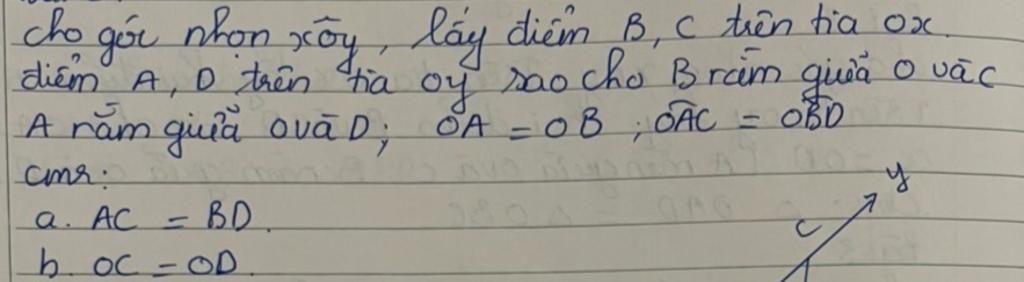 cho góc nhọn xôy, lấy điểm B, C trên tia Ox
điểm A, D trên tia oy sao cho B nằm giữa O và C
A nằm giữa O và D; OA = OB ; ÔAC = OBD
cmr:
a. AC = BD.
b. OC = OD.
y
C